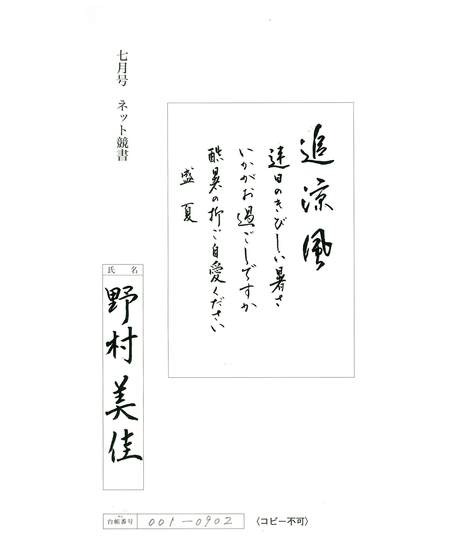 七月号　ネット競書
追涼風
連日のきびしい暑さ
いかがお過ごしですか
酷暑の折ご自愛ください
盛夏
氏名
野村美佳
台帳番号 001-0902
〈コピー不可〉